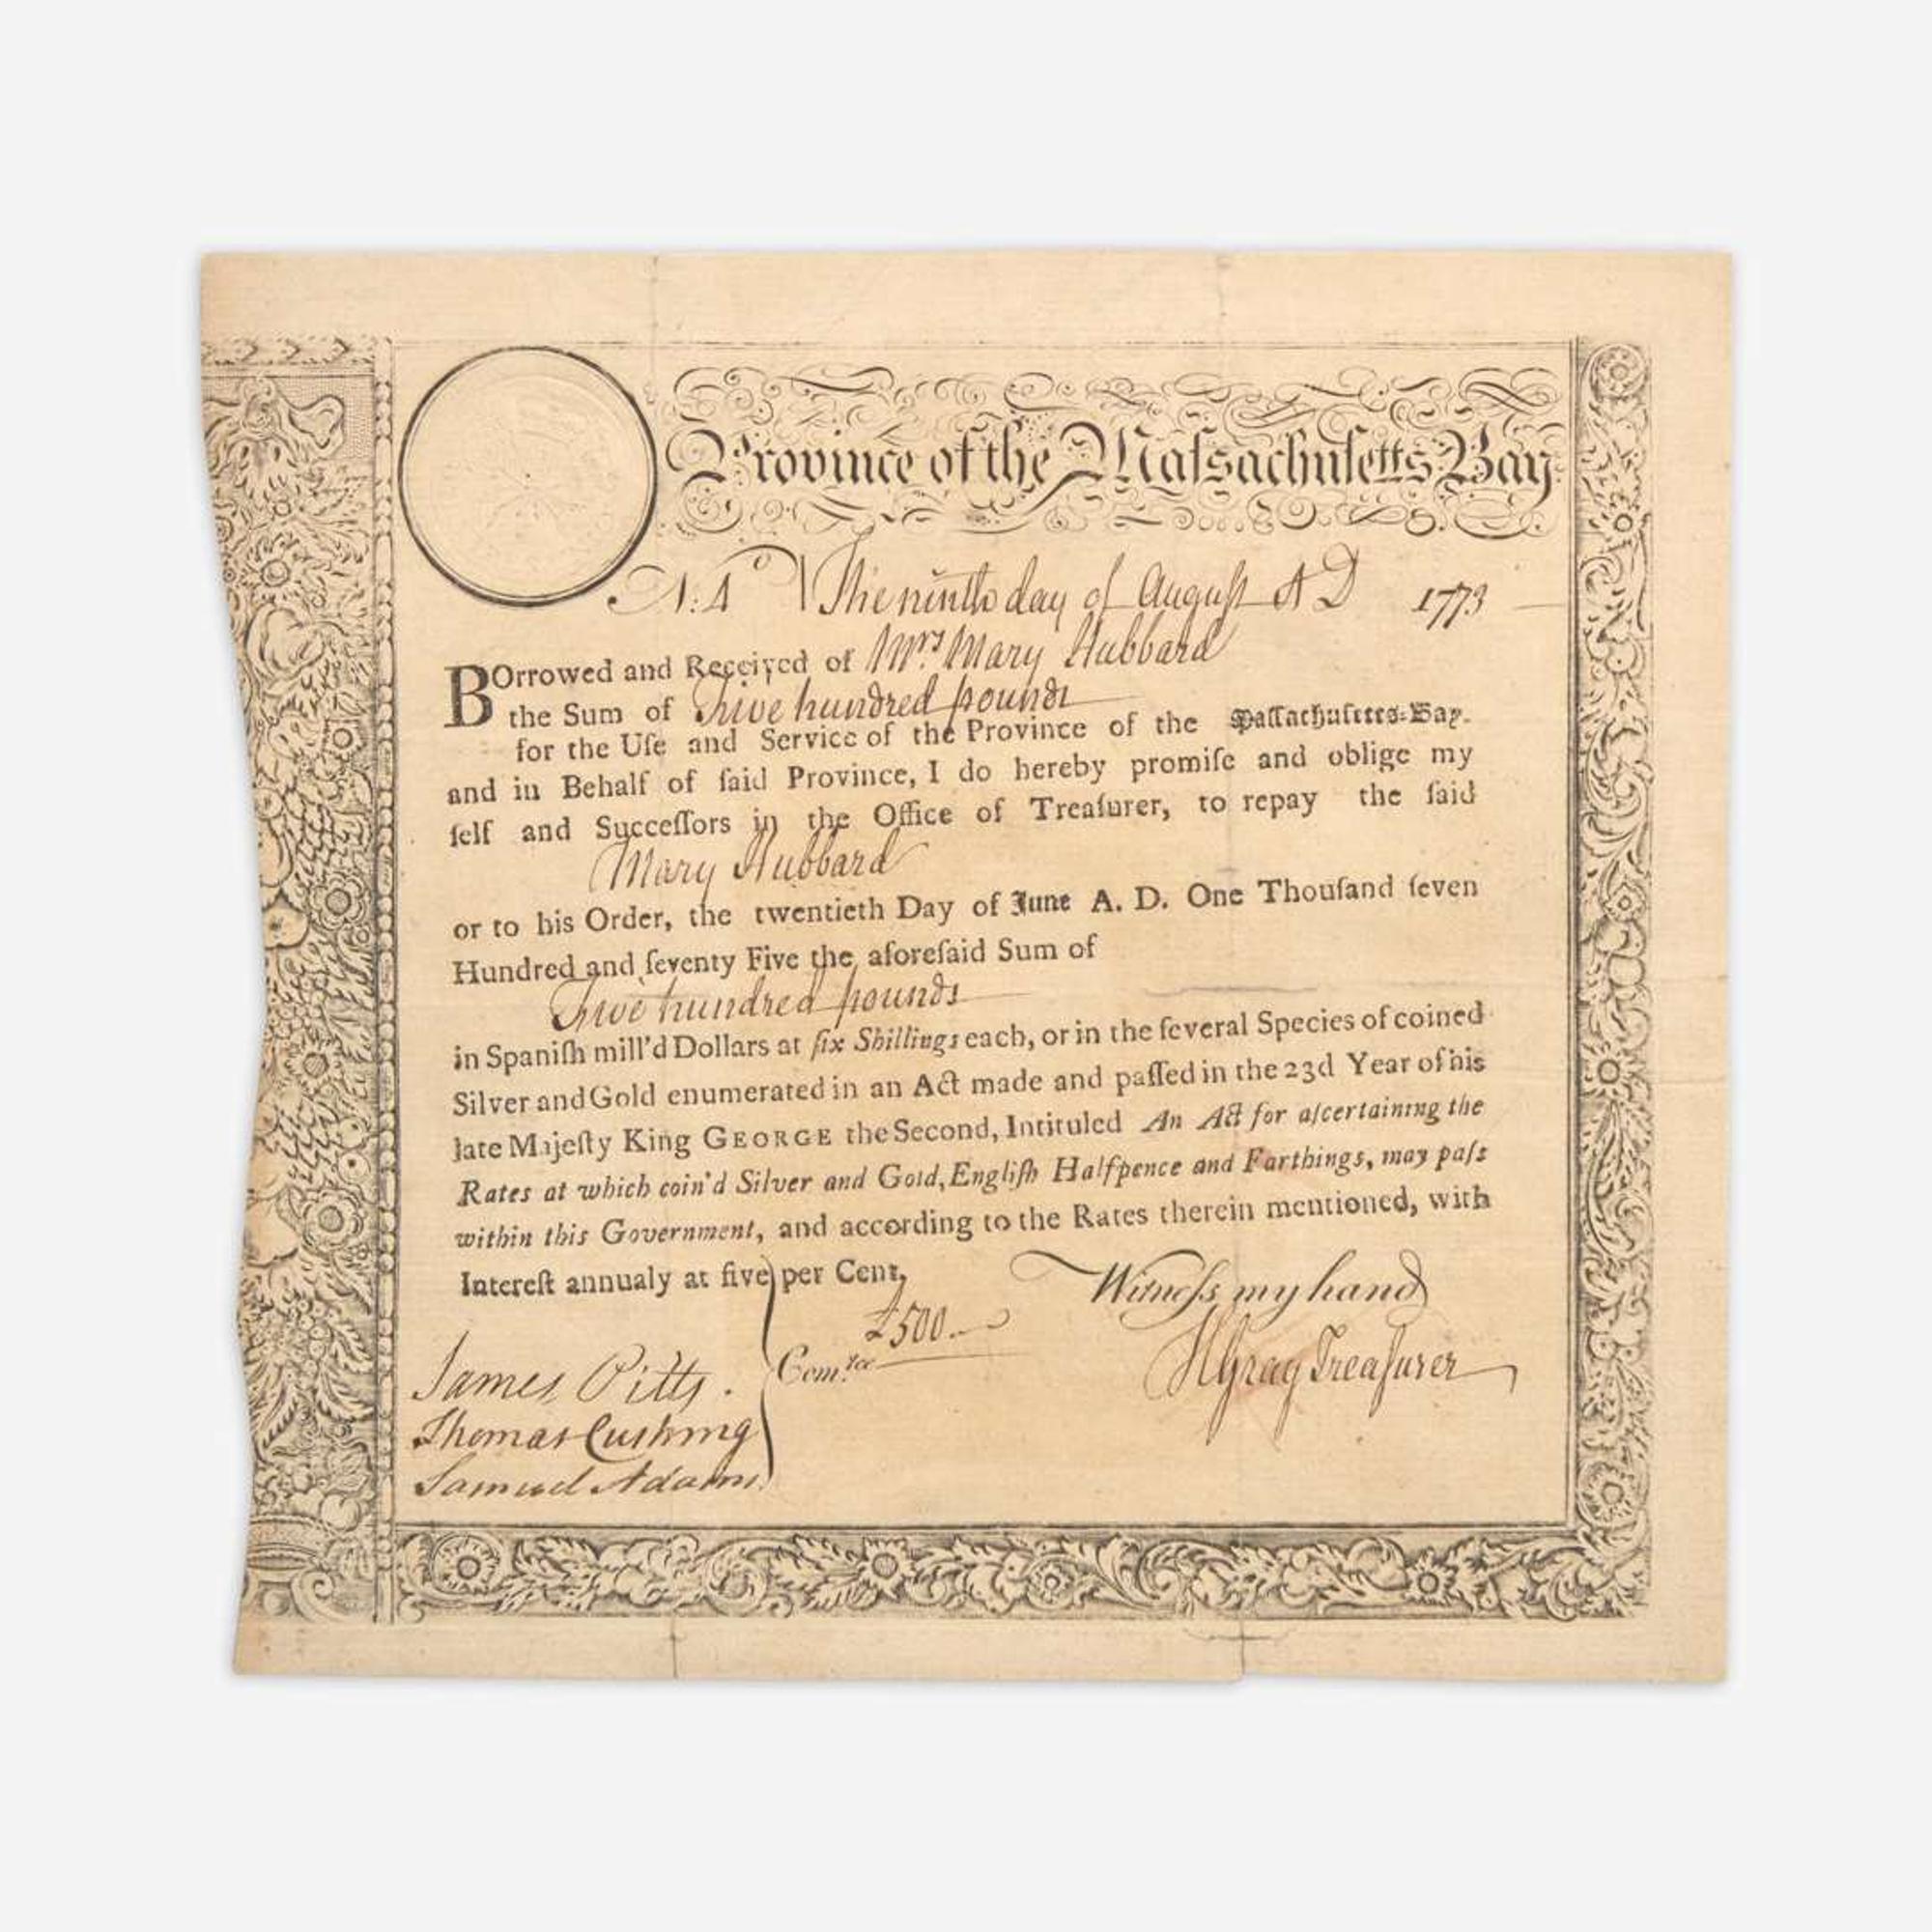 Province of the Maſsachuſetts Bay
No: 4 The ninth day of Auguſt A D 1773
BOrrowed and Received of Mrs. Mary Hubbard
the Sum of Five hundred pounds
for the Uſe and Service of the Province of the Maſſachuſetts-Bay.
and in Behalf of ſaid Province, I do hereby promiſe and oblige my
ſelf and Succeſſors in the Office of Treaſurer, to repay the ſaid
Mary Hubbard
or to his Order, the twentieth Day of June A. D. One Thouſand ſeven
Hundred and ſeventy Five the aforeſaid Sum of
Five hundred pounds
in Spaniſh mill'd Dollars at ſix Shillings each, or in the ſeveral Species of coined
Silver and Gold enumerated in an Act made and paſſed in the 23d Year of his
late Majeſty King GEORGE the Second, Intituled An Act for aſcertaining the
Rates at which coin'd Silver and Gold, Engliſh Halfpence and Farthings, may paſs
within this Government, and according to the Rates therein mentioned, with
Intereſt annualy at five per Cent,
Witneſs my hand
£500.
James Pitts.
Thomas Cushing
Samuel Adams
Comtee
HGray Treaſurer